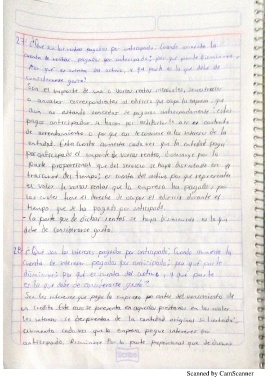 27. ¿Qué son las rentas pagadas por anticipado, Cuándo aumenta la
cuenta de rentas pagadas por anticipado, por qué puede disminuir
por qué es cuenta del activo, y qué parte es la que debe de
considerarse gasto?
Son el importe de una o varias rentas mensuales, semestrales
o anuales correspondientes al edificio que ocupa la empresa, que
aun no estando vencidas se pagan anticipadamente. Estos
pagos anticipados se hacen por
de arrendamiento o por que así le conviene a los intereses de la
entidad. Esta cuenta aumenta cada vez que la entidad pague
por anticipado el importe de varias rentas, disminuye por la
parte proporcional que del servicio se haya disfrutado en el
transcurso del tiempo; es cuenta del activo por que representa
el valor de varias rentas que la empresa ha pagado y por
las cuales tiene el derecho de ocupar el edificio durante el
tiempo que se ha pagado por anticipado.
La parte que de dichas rentas se haya disminuido, es la que
debe de considerarse gasto.
28. ¿Qué son los intereses pagados por anticipado, Cuándo aumenta la
cuenta de intereses pagados por anticipado, por qué puede
disminuir, por qué es cuenta del activo, y qué parte
es la que debe de considerarse gasto?
Son los intereses que paga la empresa por antes del vencimiento de
un crédito. Este caso se presenta en aquellos préstamos en los cuales
los intereses se desprenden de la cantidad
aumenta cada vez que la empresa pague intereses por
anticipado, disminuye por la parte proporcional que de dichos
Scanned by CamScanner